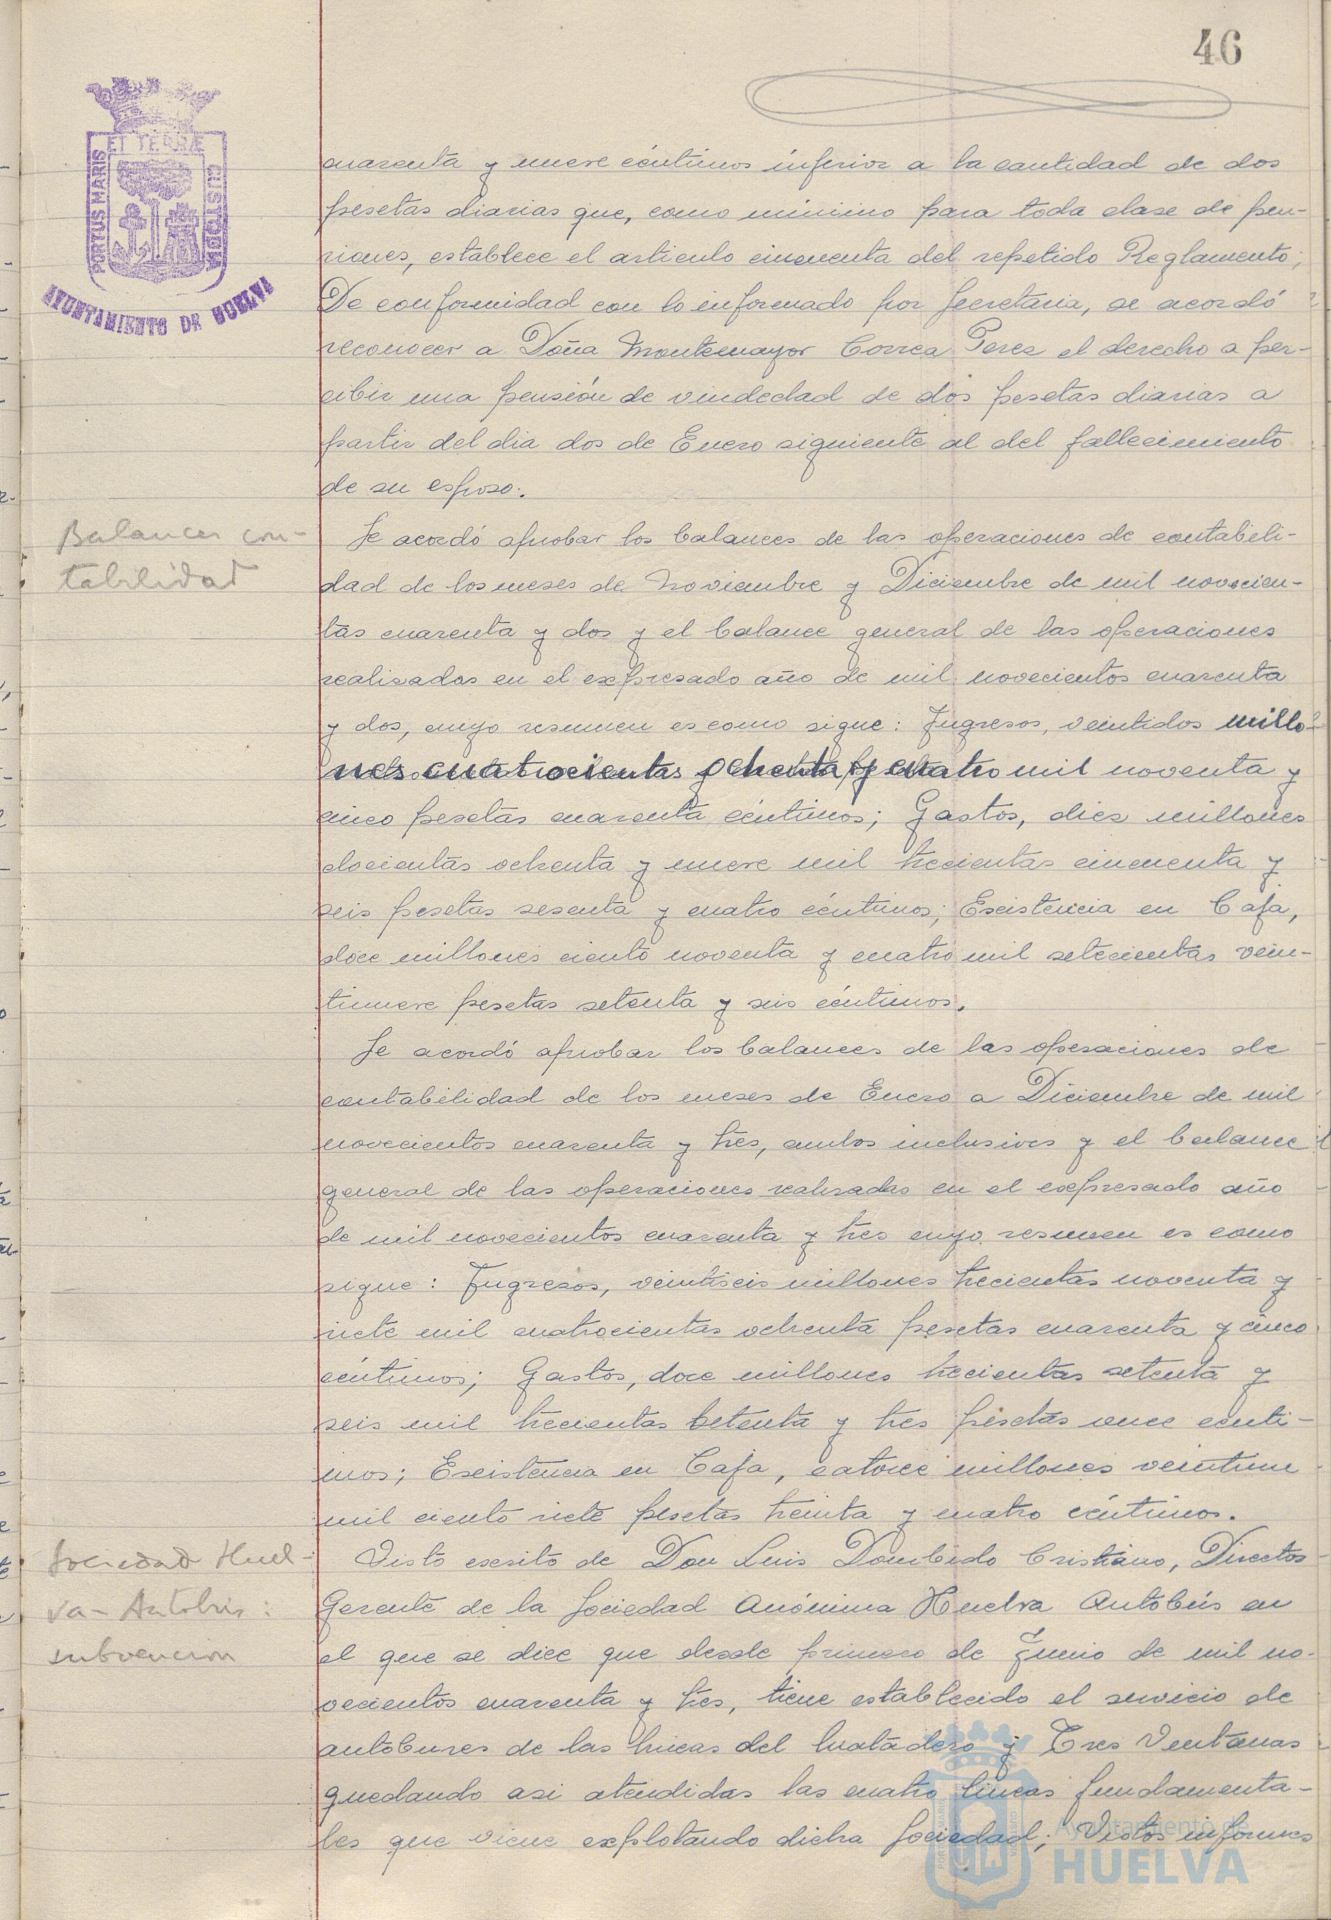 46
PORTUS MARIS ET TERRÆ CUSTODIA
AYUNTAMIENTO DE HUELVA
cuarenta y nueve céntimos inferior a la cantidad de dos
pesetas diarias que, como mínimo para toda clase de pen-
siones, establece el artículo cincuenta del repetido Reglamento;
De conformidad con lo informado por Secretaria, se acordó
reconocer a Doña Montemayor Correa Perez el derecho a per-
cibir una pensión de viudedad de dos pesetas diarias a
partir del dia dos de Enero siguiente al del fallecimiento
de su esposo.
Balances con-
tabilidad
Se acordó aprobar los balances de las operaciones de contabili-
dad de los meses de Noviembre y Diciembre de mil novecien-
tas cuarenta y dos y el balance general de las operaciones
realizadas en el expresado año de mil novecientos cuarenta
y dos, cuyo resumen es como sigue: Ingresos, veintidos millo-
nes cuatrocientas ochenta y cuatro mil noventa y
cinco pesetas cuarenta céntimos; Gastos, diez millones
docientas ochenta y nueve mil trecientas cincuenta y
seis pesetas sesenta y cuatro céntimos; Existencia en Caja,
doce millones ciento noventa y cuatro mil setecientas vein-
tinueve pesetas setenta y seis céntimos.
Se acordó aprobar los balances de las operaciones de
contabilidad de los meses de Enero a Diciembre de mil
novecientos cuarenta y tres, ambos inclusives y el balance
general de las operaciones realizadas en el expresado año
de mil novecientos cuarenta y tres cuyo resumen es como
sigue: Ingresos, veintiseis millones trecientas noventa y
siete mil cuatrocientas ochenta pesetas cuarenta y cinco
céntimos; Gastos, doce millones trecientas setenta y
seis mil trecientas setenta y tres pesetas once cénti-
mos; Existencia en Caja, catorce millones veintiun
mil ciento siete pesetas treinta y cuatro céntimos.
Sociedad Huel-
va-Autobús:
subvencion
Visto escrito de Don Luis Dombido Cristiano, Director
Gerente de la Sociedad Anónima Huelva Autobús en
el que se dice que desde primero de Junio de mil no-
vecientos cuarenta y tres, tiene establecido el servicio de
autobuses de las lineas del Matadero y Tres Ventanas
quedando asi atendidas las cuatro lineas fundamenta-
les que viene explotando dicha Sociedad; Vistos informes
Ayuntamiento de
HUELVA